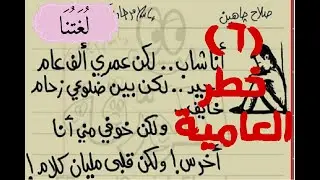 صلاح جاهين
لُغَتُنَا
(٦)
خطر
العامية
أنا شاب .. لكن عمري ألف عام
.. لكن بين ضلوعي زحام
خايف ولكن خوفي مني أنا
أخرس! ولكن قلبى مليان كلام!